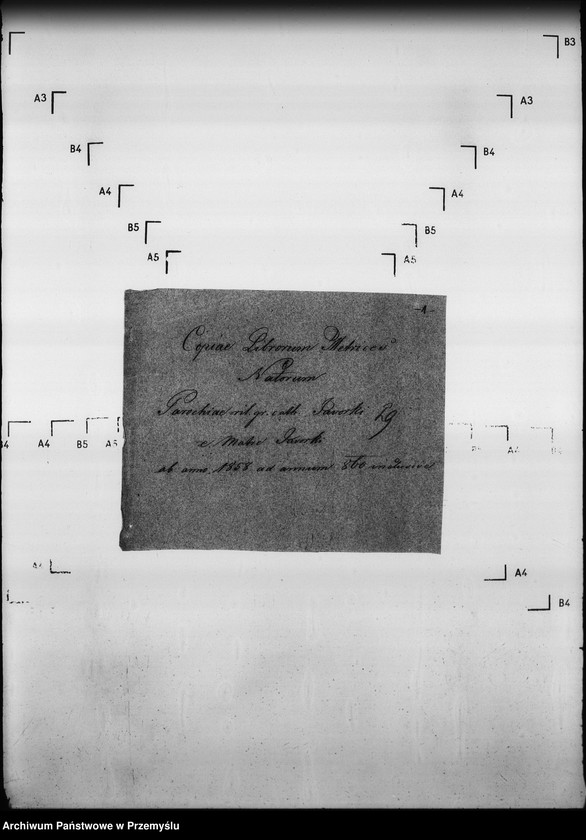 B3
A3 A3
B4 B4
A4 A4
B5 B5
A5 A5
-1-
Copiae Librorum Metrices
Natorum
Parochiae rit. gr. cath. Jaworki 29
ab anno 1858 ad annum 860 inclusive
A4 B5 A5 A4
A4
B4
Archiwum Państwowe w Przemyślu